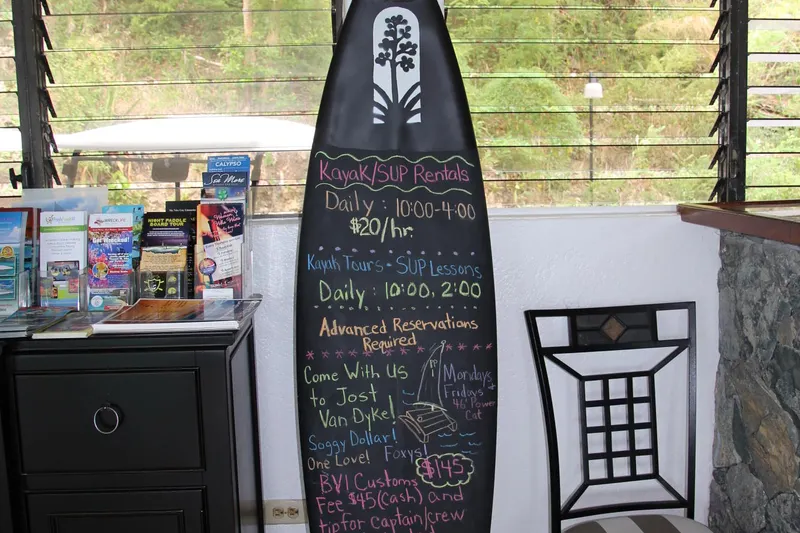 Kayak/SUP Rentals
Daily : 10:00-4:00
$20/hr.
Kayak Tours - SUP Lessons
Daily : 10:00, 2:00
Advanced Reservations
Required
Come With Us
to Jost
Van Dyke!
Mondays +
Fridays
46' Power
Cat
Soggy Dollar!
One Love! Foxys!
$145
BVI Customs
Fee $45(cash) and
tip for captain/crew
CALYPSO
See More
NIGHT PADDLE
BOARD TOUR
Get Wrecked!